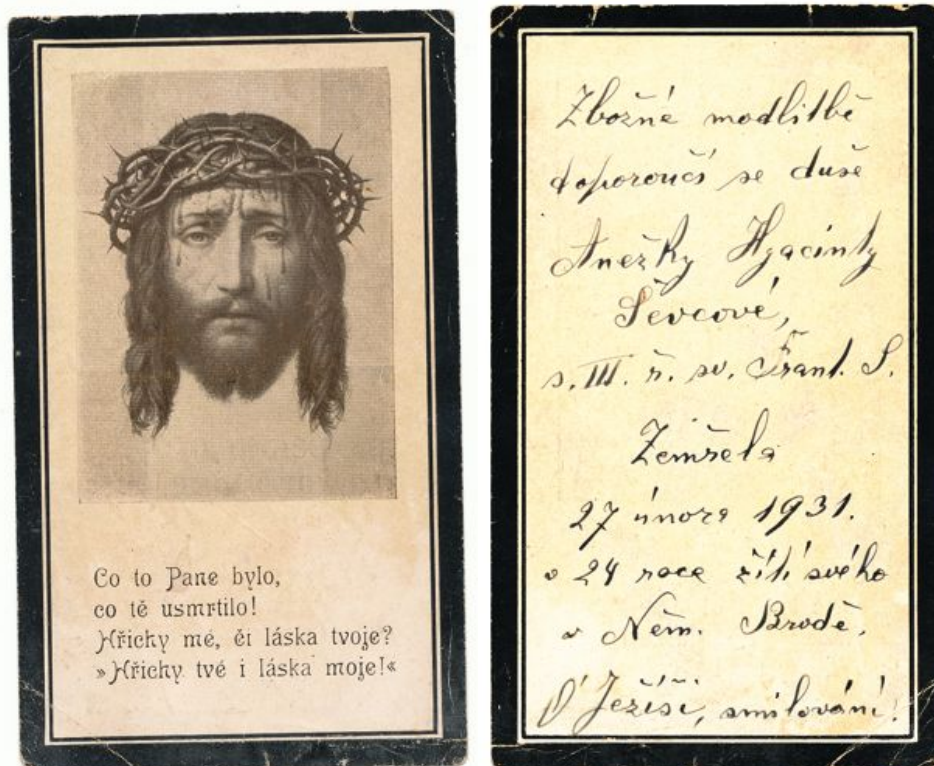 Co to Pane bylo,
co tě usmrtilo!
Hřichy mé, či láska tvoje?
»Hřichy tvé i láska moje!«
Zbožné modlitbě
doporoučí se duše
Anežky Hyacinty
Ševcové,
s. III. ř. sv. Frant. S.
Zemřela
27 února 1931.
v 24 roce žití svého
v Něm. Brodě.
Ó Ježíši, smilování!